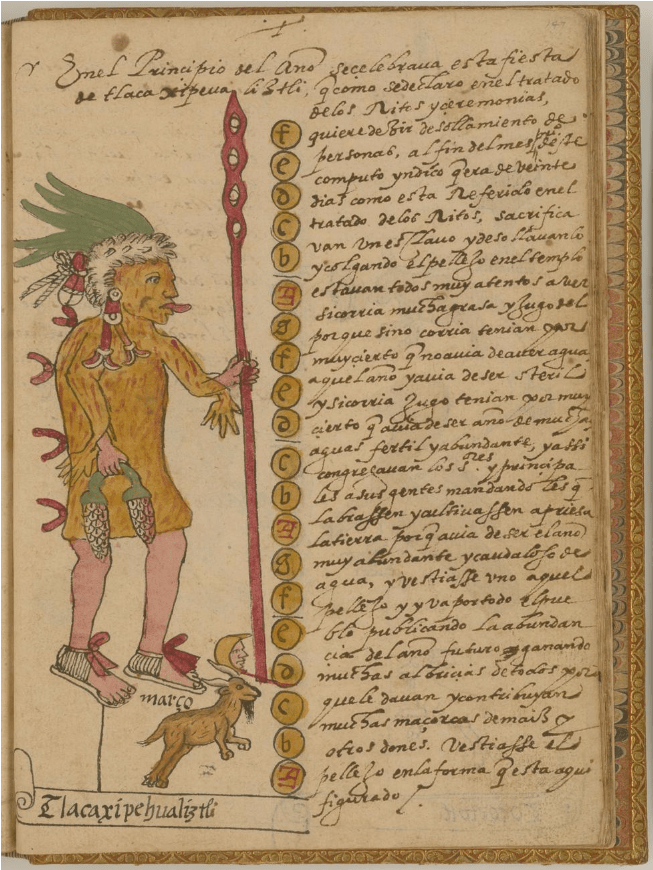 1
En el Principio del Año se celebraua esta fiesta
de tlaca xipeua liztli, q̃ como se declaro en el tratado
de los Ritos y ceremonias,
quiere dezir desollamiento de
personas, al fin del mes pri.º deste
computo yndico q̃ era de veinte
dias como esta Referido en el
tratado de los Ritos, sacrifica
uan vn esclauo y desollauanlo
y colgando el pellejo en el templo
estauan todos muy atentos a ver
si corria mucha grasa y jugo del
porque sino corria tenian por
muy cierto q̃ no auia de auer agua
aquel año y auia de ser steril
y si corria jugo tenian por muy
cierto q̃ auia de ser año de mucha
aguas fertil y abundante, y assi
congregauan los s.res y principa
les a sus gentes mandando les q̃
labrassen y cultiuassen apriesa
la tierra porq̃ auia de ser el año
muy abundante y caudaloso de
agua, y vestiasse vno aquel
pellejo y yua por todo el pue
blo publicando la abundan
cia del año futuro ganando
muchas albricias de todos por
que le dauan y contribuyan
muchas maçorcas de maiz y
otros dones. Vestiasse el
pellejo en la forma q̃ esta aqui
figurado
f
e
d
c
b
A
g
f
e
d
c
b
A
g
f
e
d
c
b
A
março
Tlacaxipehualiztli